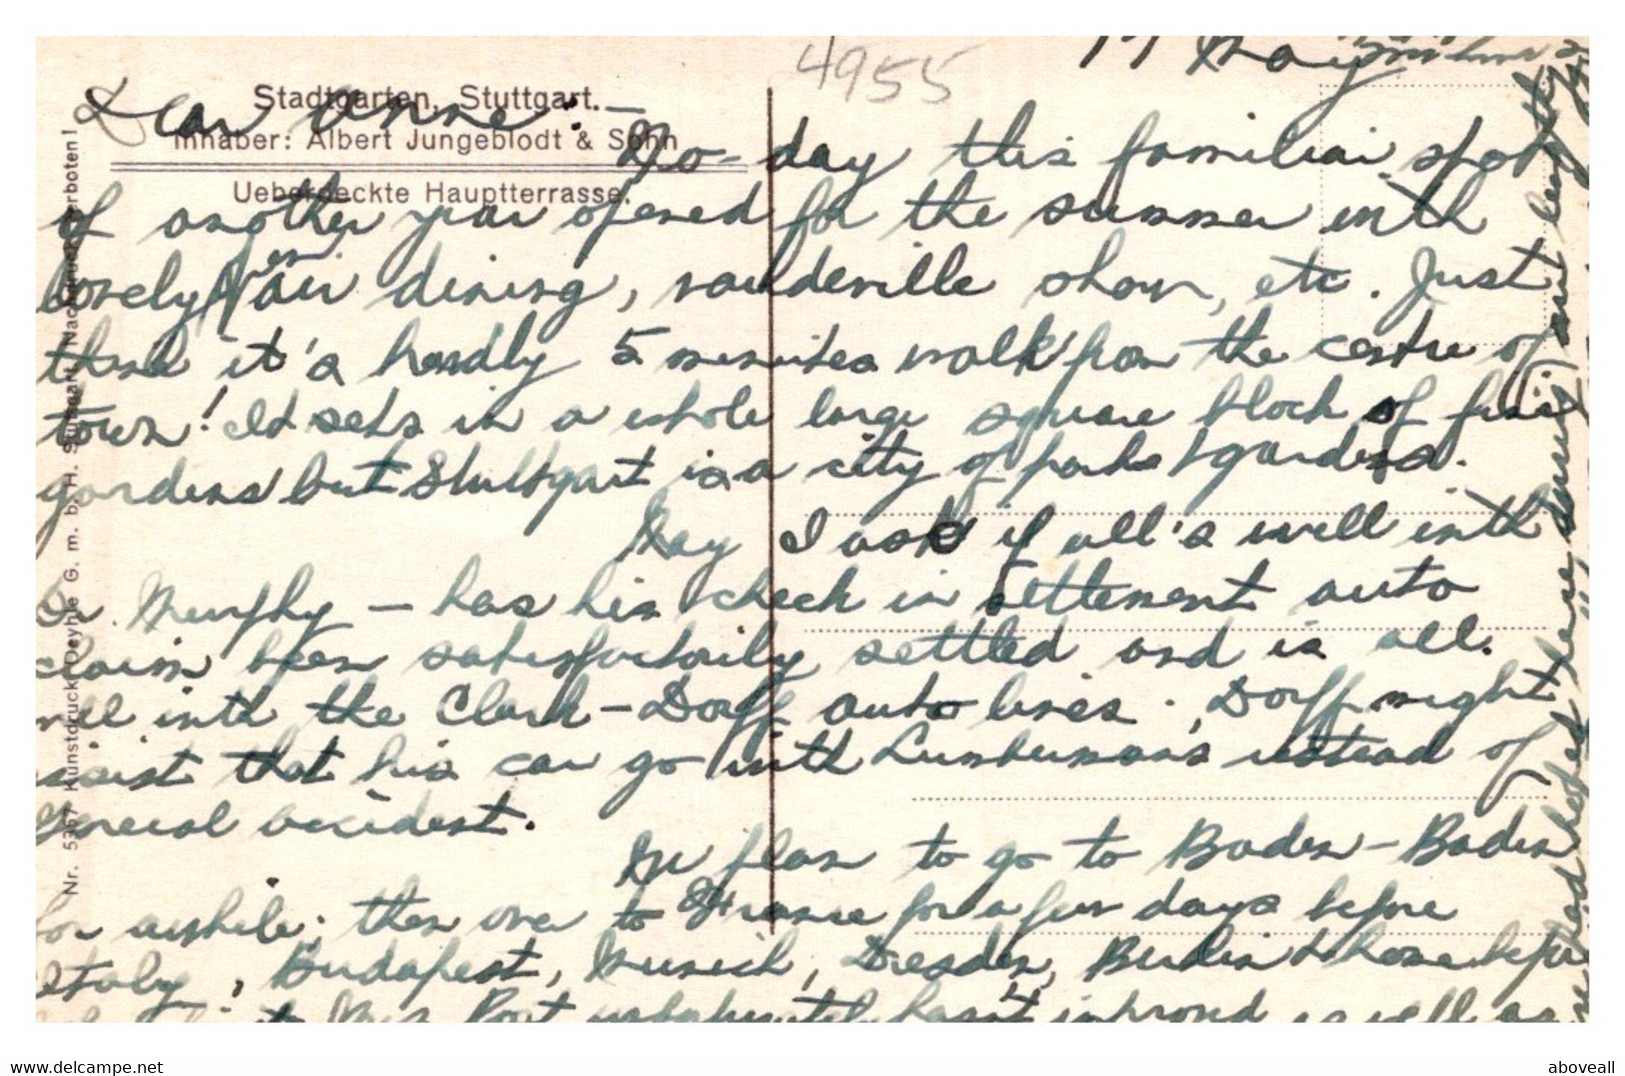 4955
17 May
Dear Anne: —
Stadtgarten, Stuttgart.
Inhaber: Albert Jungeblodt & Sohn
Ueberdeckte Hauptterrasse.
To-day this familiar spot
of another year opened for the summer with
lovely open air dining, vaudeville show, etc. Just
think it's a hardly 5 minutes walk from the centre of
town! It sets in a whole large square block of fine
gardens but Stuttgart is a city of parks & gardens.
May I ask if all's well with
Dr Murphy — has his check in settlement auto
claim been satisfactorily settled and is all
well with the Clark-Dorff auto lines. Dorff might
insist that his car go with Lumberman's instead of
General accident.
We plan to go to Baden-Baden
for awhile; then over to France for a few days before
Italy, Budapest, Munich, Dresden, Berlin & home before
Mrs Post unfortunately hasn't improved as well as
Nr. 5367 Kunstdruck Deyhle G. m. b. H. Stuttgart Nachdruck verboten!
www.delcampe.net
aboveall